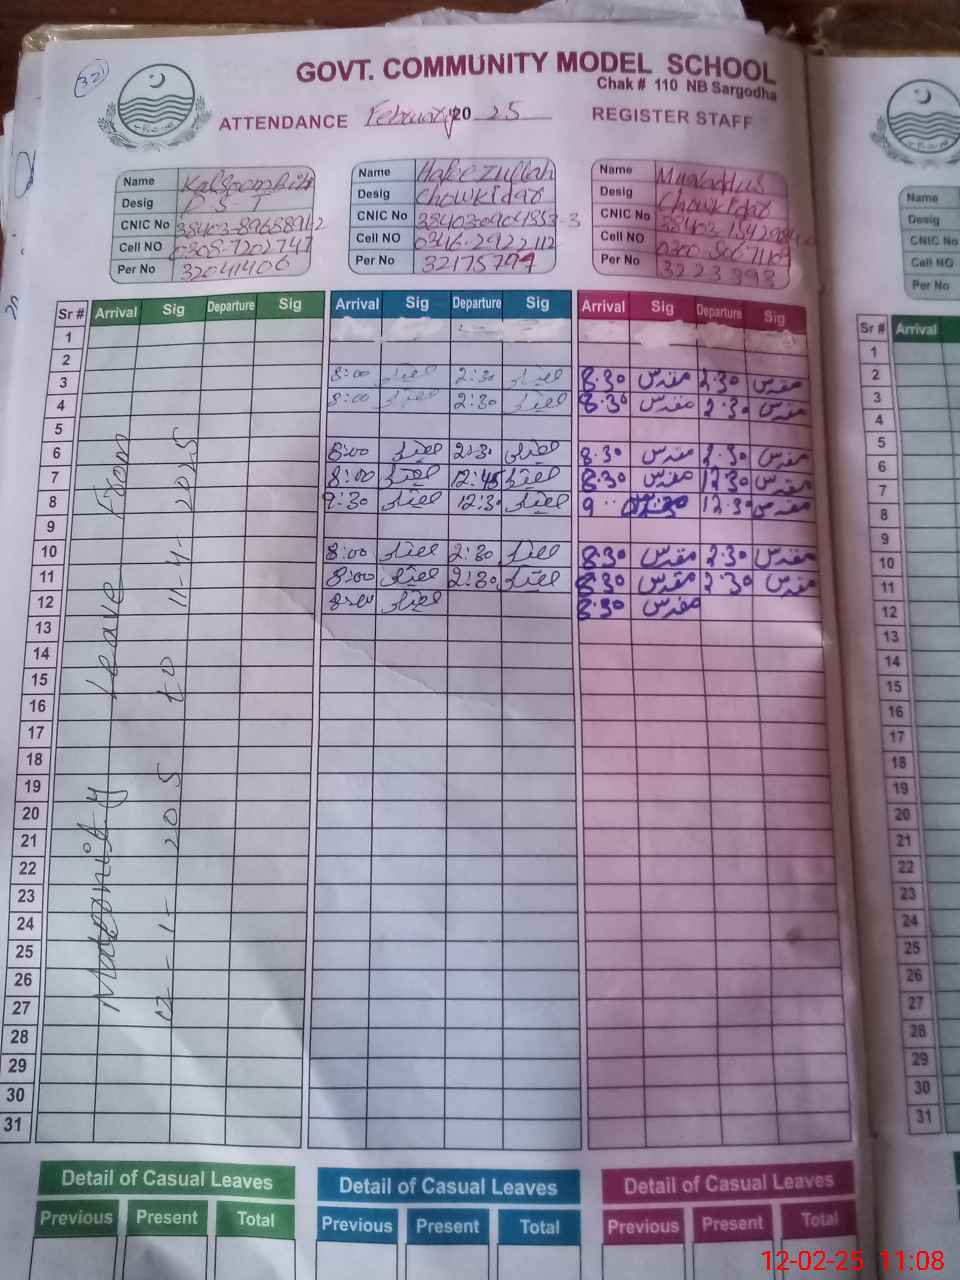 321
GOVT. COMMUNITY MODEL SCHOOL
Chak # 110 NB Sargodha
ATTENDANCE February 2025 REGISTER STAFF
Name
Desig P S T
CNIC No
Cell NO
Per No 32041406
Name Hafeezullah
Desig Chowkidar
CNIC No
Cell NO 0346-2922112
Per No 32175794
Name Muqaddas
Desig Chowkidar
CNIC No
Cell NO
Per No 3223393
Sr # Arrival Sig Departure Sig Arrival Sig Departure Sig Arrival Sig Departure Sig
1
2
3 8:00 2:30 8.30 مقدس 2.30 مقدس
4 8:00 2:30 8.30 مقدس 2.30 مقدس
5
6 8:00 2:30 8.30 مقدس 2.30 مقدس
7 8:00 12:45 8.30 مقدس 12.30 مقدس
8 9:30 12:30 9 12.30 مقدس
9
10 8:00 2:30 8.30 مقدس 2.30 مقدس
11 8:00 2:30 8.30 مقدس 2.30 مقدس
12 8:00 8.30 مقدس
13
14
15
16
17
18
19
20
21
22
23
24
25
26
27
28
29
30
31
Maternity Leave From
12-1-2025 to 11-4-2025
Detail of Casual Leaves Detail of Casual Leaves Detail of Casual Leaves
Previous Present Total Previous Present Total Previous Present Total
Name
Desig
CNIC No
Cell NO
Per No
Sr # Arrival
1
2
3
4
5
6
7
8
9
10
11
12
13
14
15
16
17
18
19
20
21
22
23
24
25
26
27
28
29
30
31
12-02-25 11:08